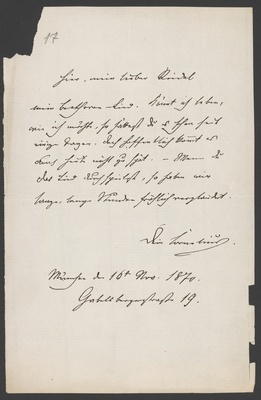 17
Hier, mein lieber Riedel
mein Beethoven-Lied. Könnt ich leben,
wie ich möchte, so hättest du es schon seit
einige Tagen. Doch hoffentlich kommt es
auch heute nicht zu spät. – Wenn du
das Lied durchspielst, so haben wir
lange, lange Stunden fröhlich
Dein Cornelius.
München den 16t Nov. 1870.
Gabelsbergerstraße 19.